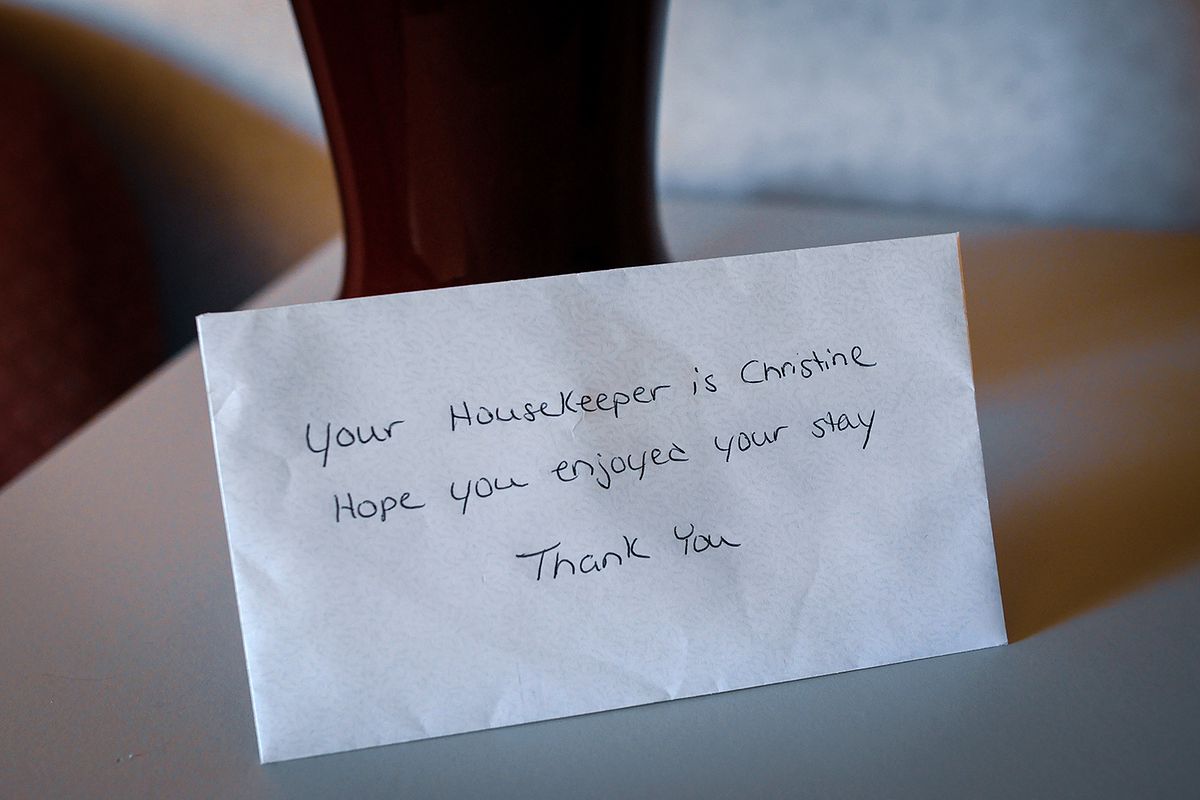 Your Housekeeper is Christine
Hope you enjoyed your stay
Thank You